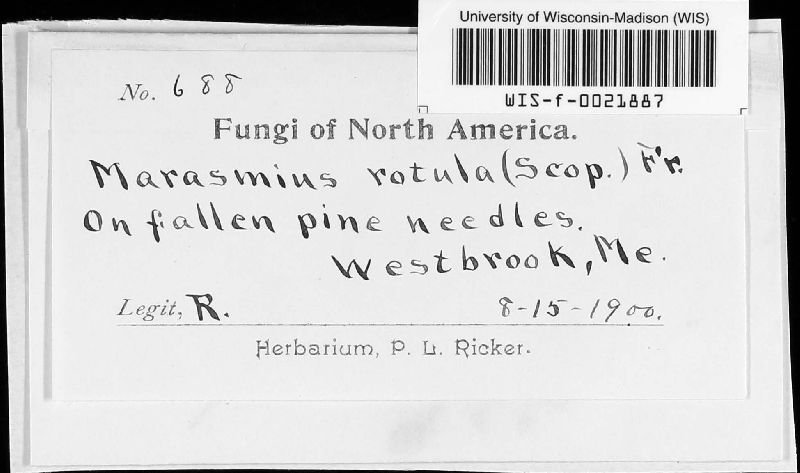 University of Wisconsin-Madison (WIS)
WIS-f-0021887
No. 688
Fungi of North America.
Marasmius rotula (Scop.) Fr.
On fallen pine needles.
Westbrook, Me.
Legit, R. 8-15-1900.
Herbarium, P. L. Ricker.